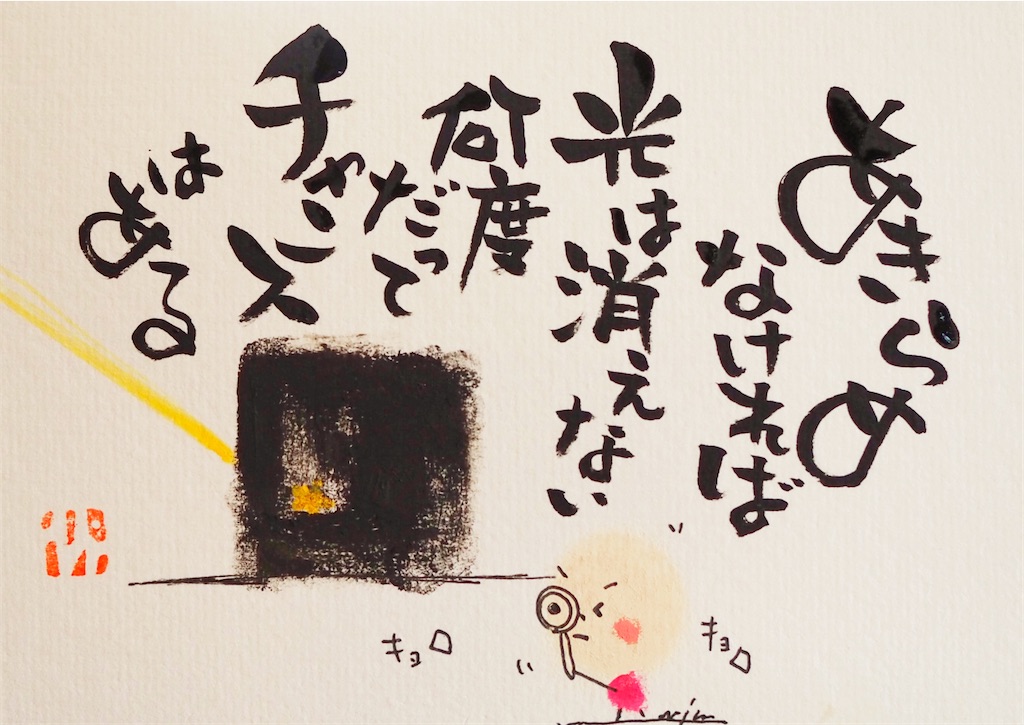 あきらめ
なければ
光は消えない
何度
だって
チャンス
はある
キョロ
キョロ